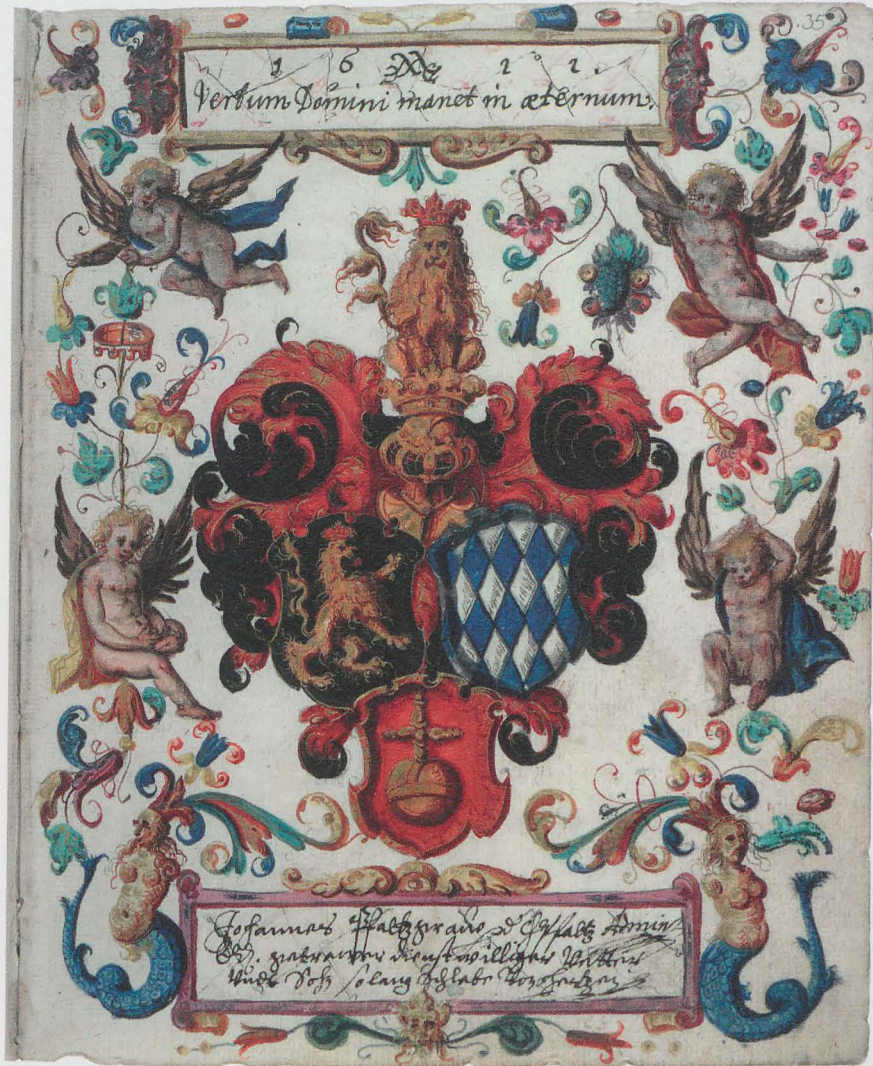 35
1 6 1 1.
Verbum Domini manet in æternum.
Johannes Pfaltzgrave d Chpfaltz Admin
E. getrewer dienstwilliger Vatter
Undt Sohn so lang Ich lebe von hertzen